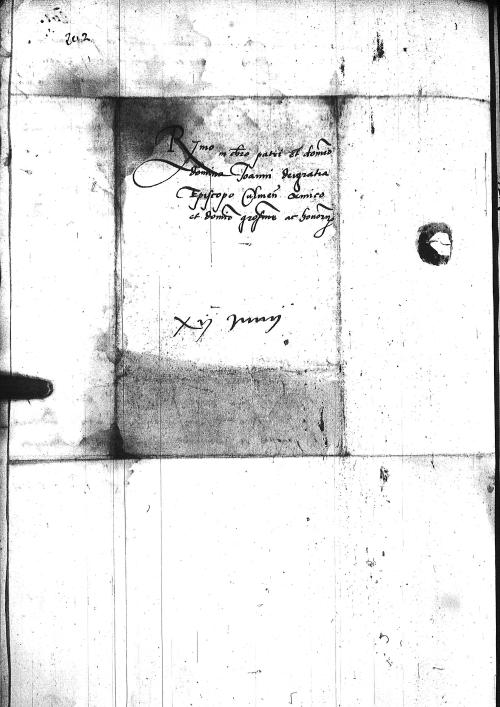 202
R͞imo in Chro patri et domino
domino Joanni dei gratia
Episcopo Culmen̄ amico
et domino gr̄osme ac honor̄
xij Junij